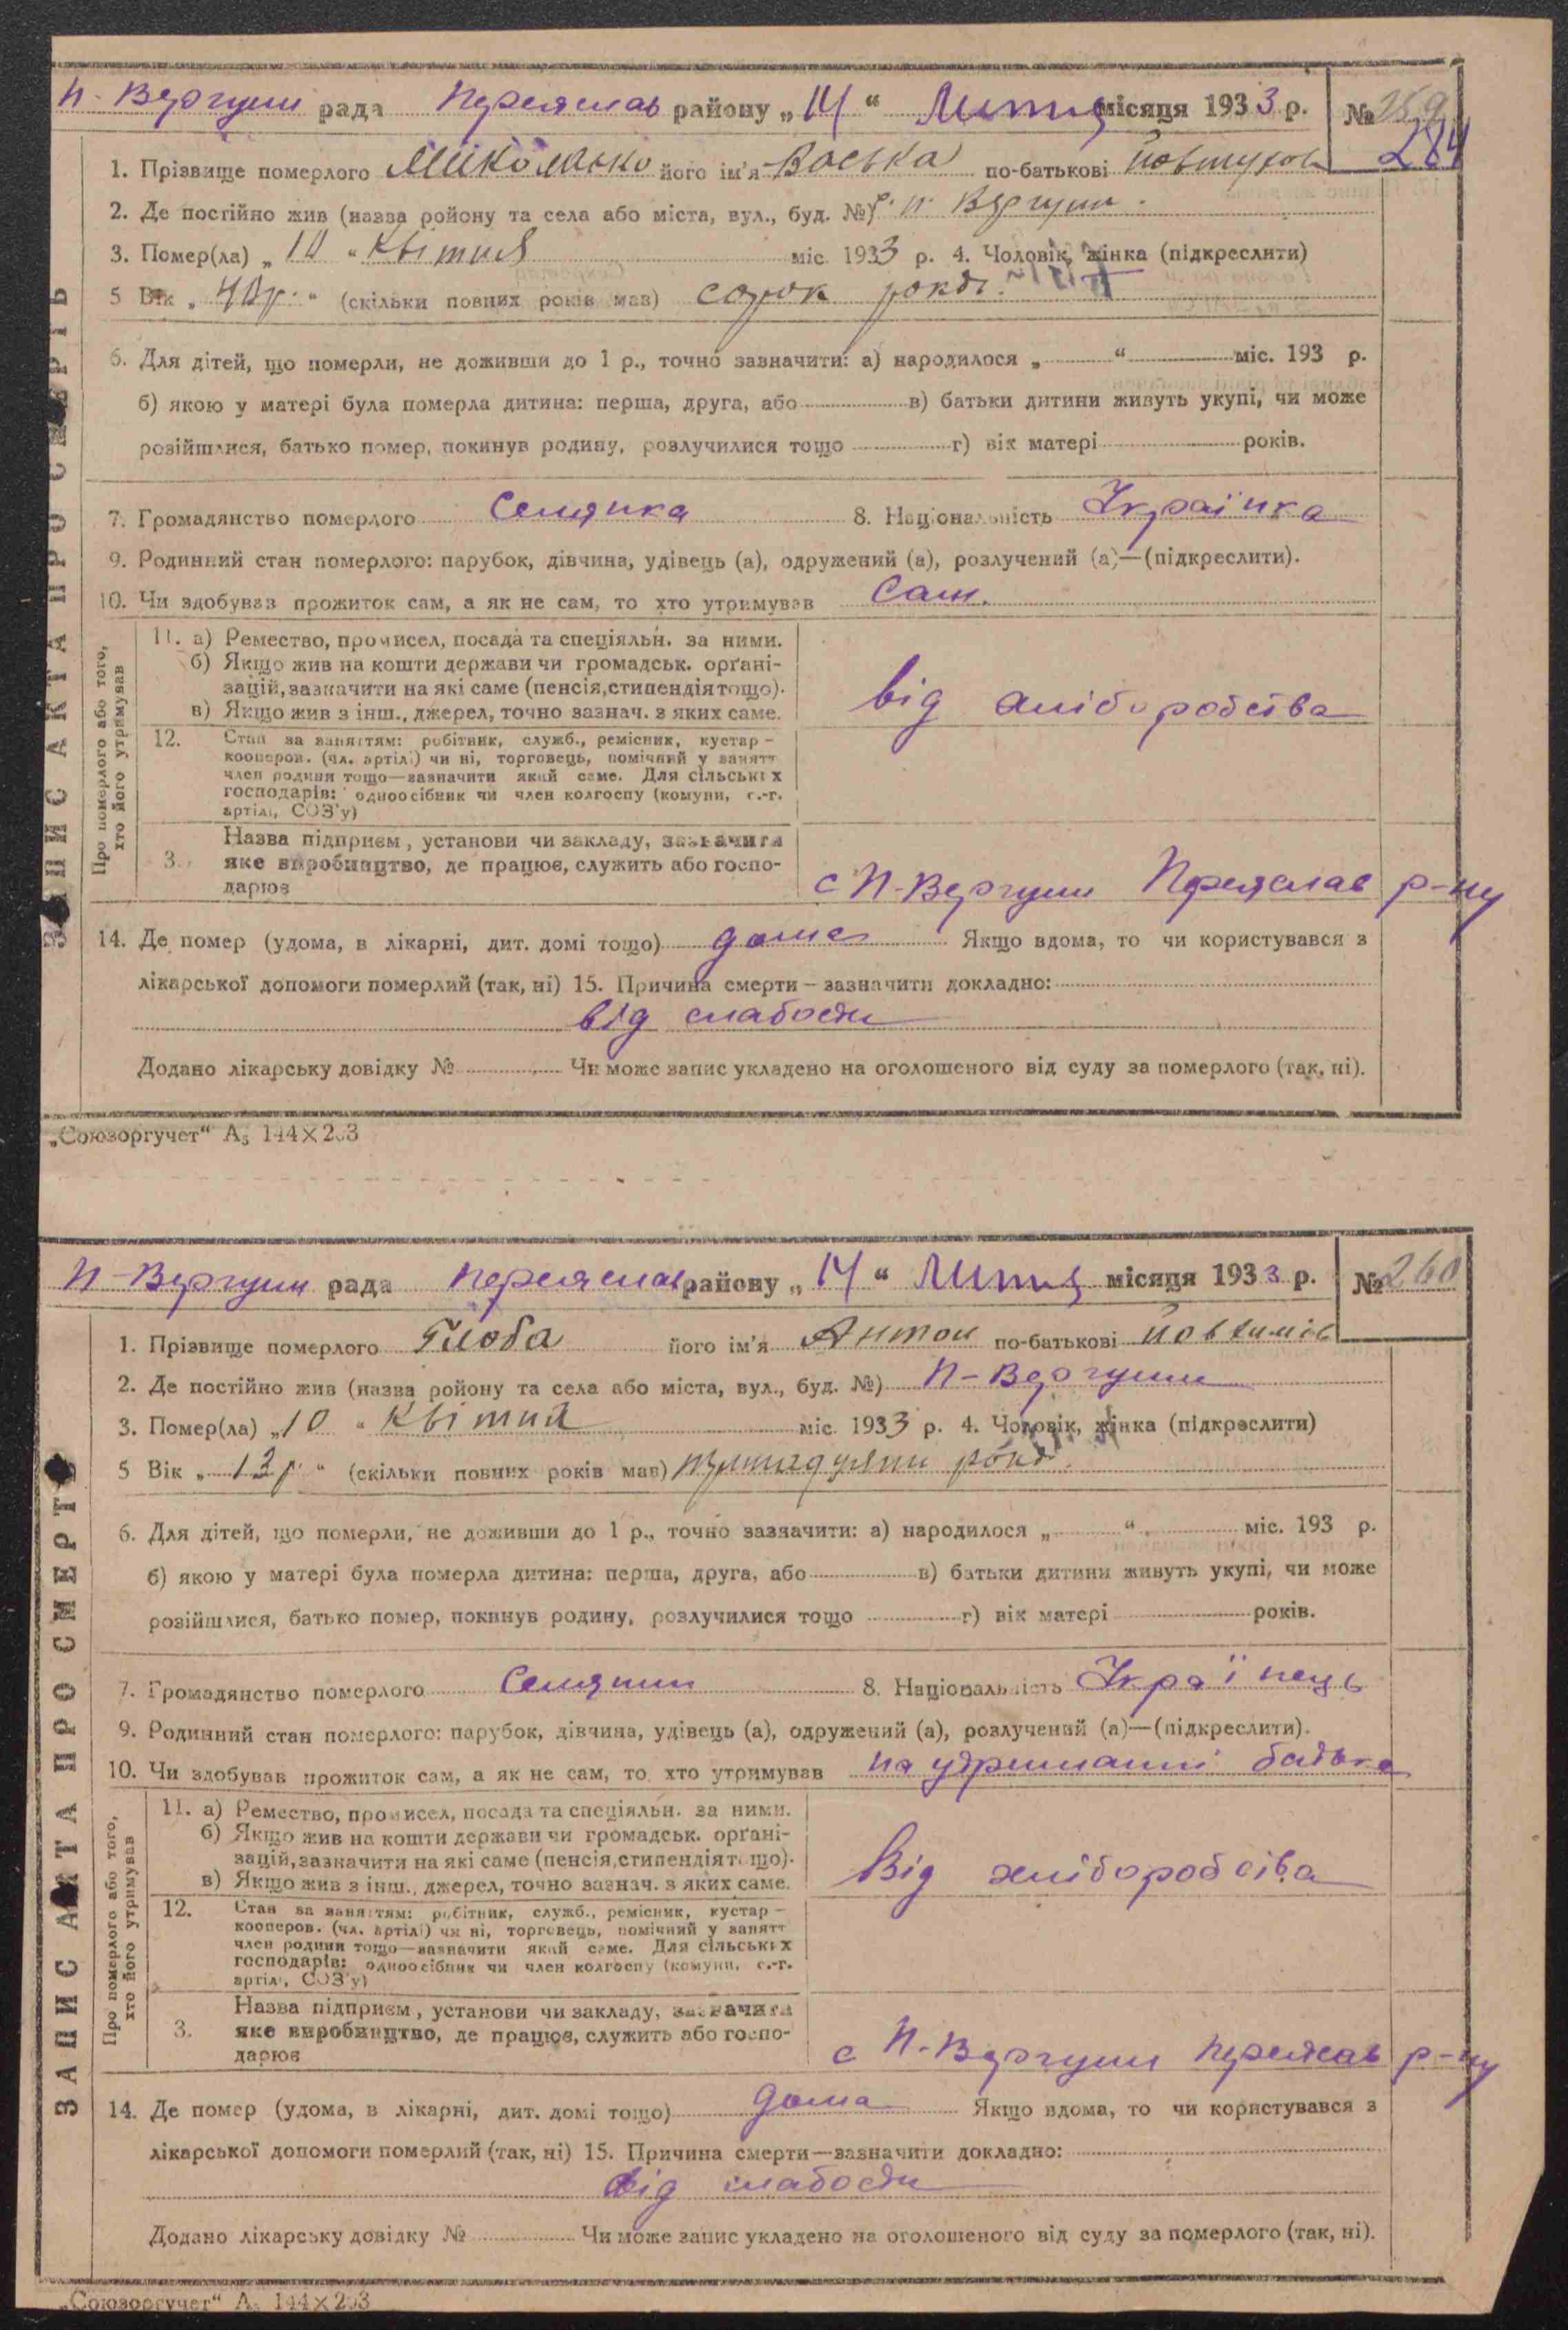 П-Вергуни рада Переяслав району „14“ Липця місяця 1933 р. № 259
284
1. Прізвище померлого його ім'я Васька по-батькові
2. Де постійно жив (назва ройону та села або міста, вул., буд. №) с. П. Вергуни.
3. Помер(ла) „10“ Квітня міс. 1933 р. 4. Чоловік, жінка (підкреслити)
5 Вік „40 р.“ (скільки повних років мав) сорок років.
6. Для дітей, що померли, не доживши до 1 р., точно зазначити: а) народилося „ “ міс. 193 р.
б) якою у матері була померла дитина: перша, друга, або в) батьки дитини живуть укупі, чи може
розійшлися, батько помер, покинув родину, розлучилися тощо г) вік матері років.
7. Громадянство померлого Селянка 8. Національність Українка
9. Родинний стан померлого: парубок, дівчина, удівець (а), одружений (а), розлучений (а)—(підкреслити).
10. Чи здобував прожиток сам, а як не сам, то хто утримував Сам.
ЗАПИС АКТА ПРО СМЕРТЬ
Про померлого або того, хто його утримував
11. а) Ремество, промисел, посада та спеціяльн. за ними.
б) Якщо жив на кошти держави чи громадськ. орґані-
зацій, зазначити на які саме (пенсія, стипендія тощо).
в) Якщо жив з інш., джерел, точно зазнач. з яких саме.
від хліборобства
12. Стан за заняттям: робітник, служб., ремісник, кустар –
кооперов. (чл. артілі) чи ні, торговець, помічний у занятт
член родини тощо—зазначити який саме. Для сільських
господарів: одноосібник чи член колгоспу (комуни, с.-г.
артілі, СОЗ'у)
Назва підприєм, установи чи закладу, зазначити
3. яке виробництво, де працює, служить або госпо-
дарює
с П-Вергуни Переяслав р-ну
14. Де помер (удома, в лікарні, дит. домі тощо) дома Якщо вдома, то чи користувався з
лікарської допомоги померлий (так, ні) 15. Причина смерти – зазначити докладно:
від слабости
Додано лікарську довідку № Чи може запис укладено на оголошеного від суду за померлого (так, ні).
„Союзоргучет“ А5 144×203
П-Вергуни рада Переяслав району „14“ Липця місяця 1933 р. № 260
1. Прізвище померлого Глоба його ім'я Антон по-батькові Йовхимів
2. Де постійно жив (назва ройону та села або міста, вул., буд. №) П-Вергуни
3. Помер(ла) „10“ Квітня міс. 1933 р. 4. Чоловік, жінка (підкреслити)
5 Вік „13 р.“ (скільки повних років мав) років.
6. Для дітей, що померли, не доживши до 1 р., точно зазначити: а) народилося „ “ міс. 193 р.
б) якою у матері була померла дитина: перша, друга, або в) батьки дитини живуть укупі, чи може
розійшлися, батько помер, покинув родину, розлучилися тощо г) вік матері років.
7. Громадянство померлого Селянин 8. Національність Українець
9. Родинний стан померлого: парубок, дівчина, удівець (а), одружений (а), розлучений (а)—(підкреслити).
10. Чи здобував прожиток сам, а як не сам, то хто утримував на утриманні батька
ЗАПИС АКТА ПРО СМЕРТЬ
Про померлого або того, хто його утримував
11. а) Ремество, промисел, посада та спеціяльн. за ними.
б) Якщо жив на кошти держави чи громадськ. орґані-
зацій, зазначити на які саме (пенсія, стипендія тощо).
в) Якщо жив з інш., джерел, точно зазнач. з яких саме.
Від хліборобства
12. Стан за заняттям: робітник, служб., ремісник, кустар –
кооперов. (чл. артілі) чи ні, торговець, помічний у занятт
член родини тощо—зазначити який саме. Для сільських
господарів: одноосібник чи член колгоспу (комуни, с.-г.
артілі, СОЗ'у)
Назва підприєм, установи чи закладу, зазначити
3. яке виробництво, де працює, служить або госпо-
дарює
с П-Вергуни Переяслав р-ну
14. Де помер (удома, в лікарні, дит. домі тощо) дома Якщо вдома, то чи користувався з
лікарської допомоги померлий (так, ні) 15. Причина смерти—зазначити докладно:
від слабости
Додано лікарську довідку № Чи може запис укладено на оголошеного від суду за померлого (так, ні).
„Союзоргучет“ А5 144×203